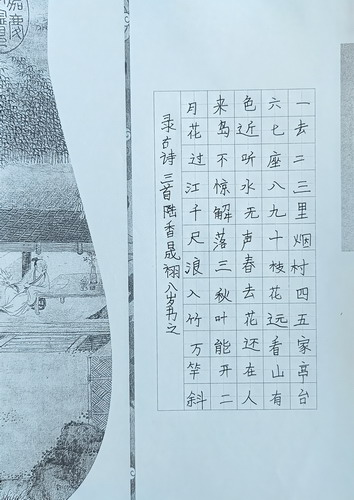 一去二三里烟村四五家亭台
六七座八九十枝花远看山有
色近听水无声春去花还在人
来鸟不惊解落三秋叶能开二
月花过江千尺浪入竹万竿斜
录古诗三首陆香晟栩八岁书之